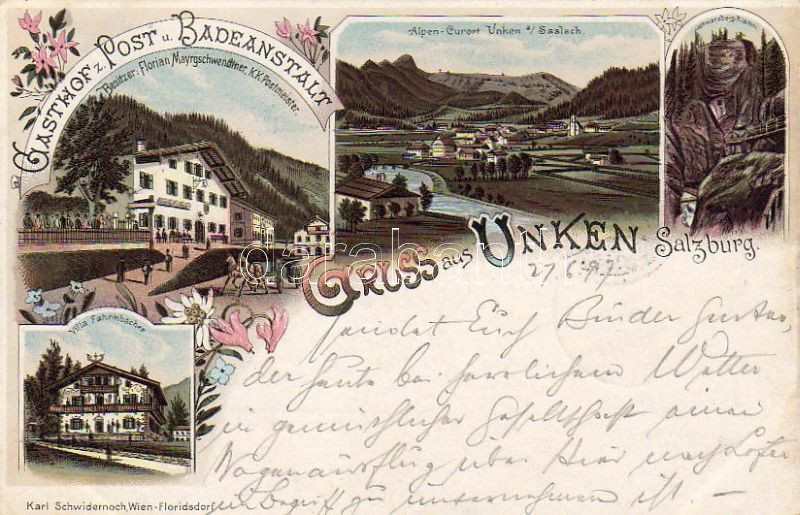 Gasthof z. Post u. Badeanstalt
Besitzer: Florian Mayrgschwendtner, KK Postmeister.
Alpen-Curort Unken a/ Saalach.
Gruss aus Unken Salzburg.
27.6.97
Villa Fahrmbacher
sendet Euch Bruder Gustav,
der heute bei herrlichem Wetter
in gemüthlicher Gesellschaft einen
Wagenausflug über Hier nach Lofer
im Begriff zu unternehmen ist. —
Karl Schwidernoch, Wien-Floridsdorf